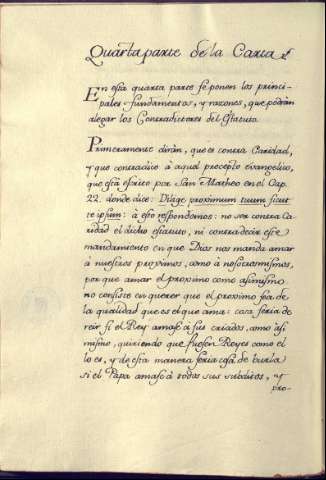 Quarta parte de la Carta
En esta quarta parte se ponen los princi-
pales fundamentos, y razones, que podran
alegar los Contradictores del Estatuto.
Primeramente dirán, que es contra Caridad,
y que contradice à aquel precepto evangelico,
que està escrito por San Matheo en el Cap.
22. donde dice: Diliges proximum tuum sicut
te ipsum: à esto respondemos: no ser contra Ca-
ridad el dicho estatuto, ni contradecir este
mandamiento en que Dios nos manda amar
à nuestros proximos, como à nosotros mismos,
por que amar el proximo como asimismo
no consiste en querer que el proximo sea de
la qualidad que es el que ama: cosa seria de
reir si el Rey amase à sus criados, como asi
mismo, quiriendo que fuesen Reyes como el
lo es, y de esta manera seria cosa de burla
si el Papa amase à todos sus subditos, y
pro-